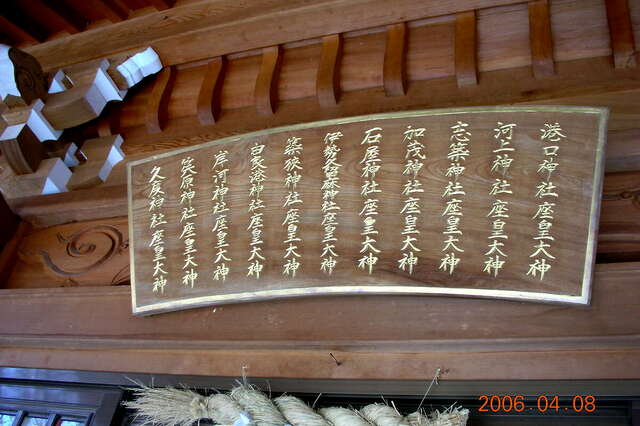 港口神社座皇大神
河上神社座皇大神
志築神社座皇大神
加茂神社座皇大神
石屋神社座皇大神
神社座皇大神
築狭神社座皇大神
神社座皇大神
岸河神社座皇大神
笶原神社座皇大神
久度神社座皇大神
2006.04.08